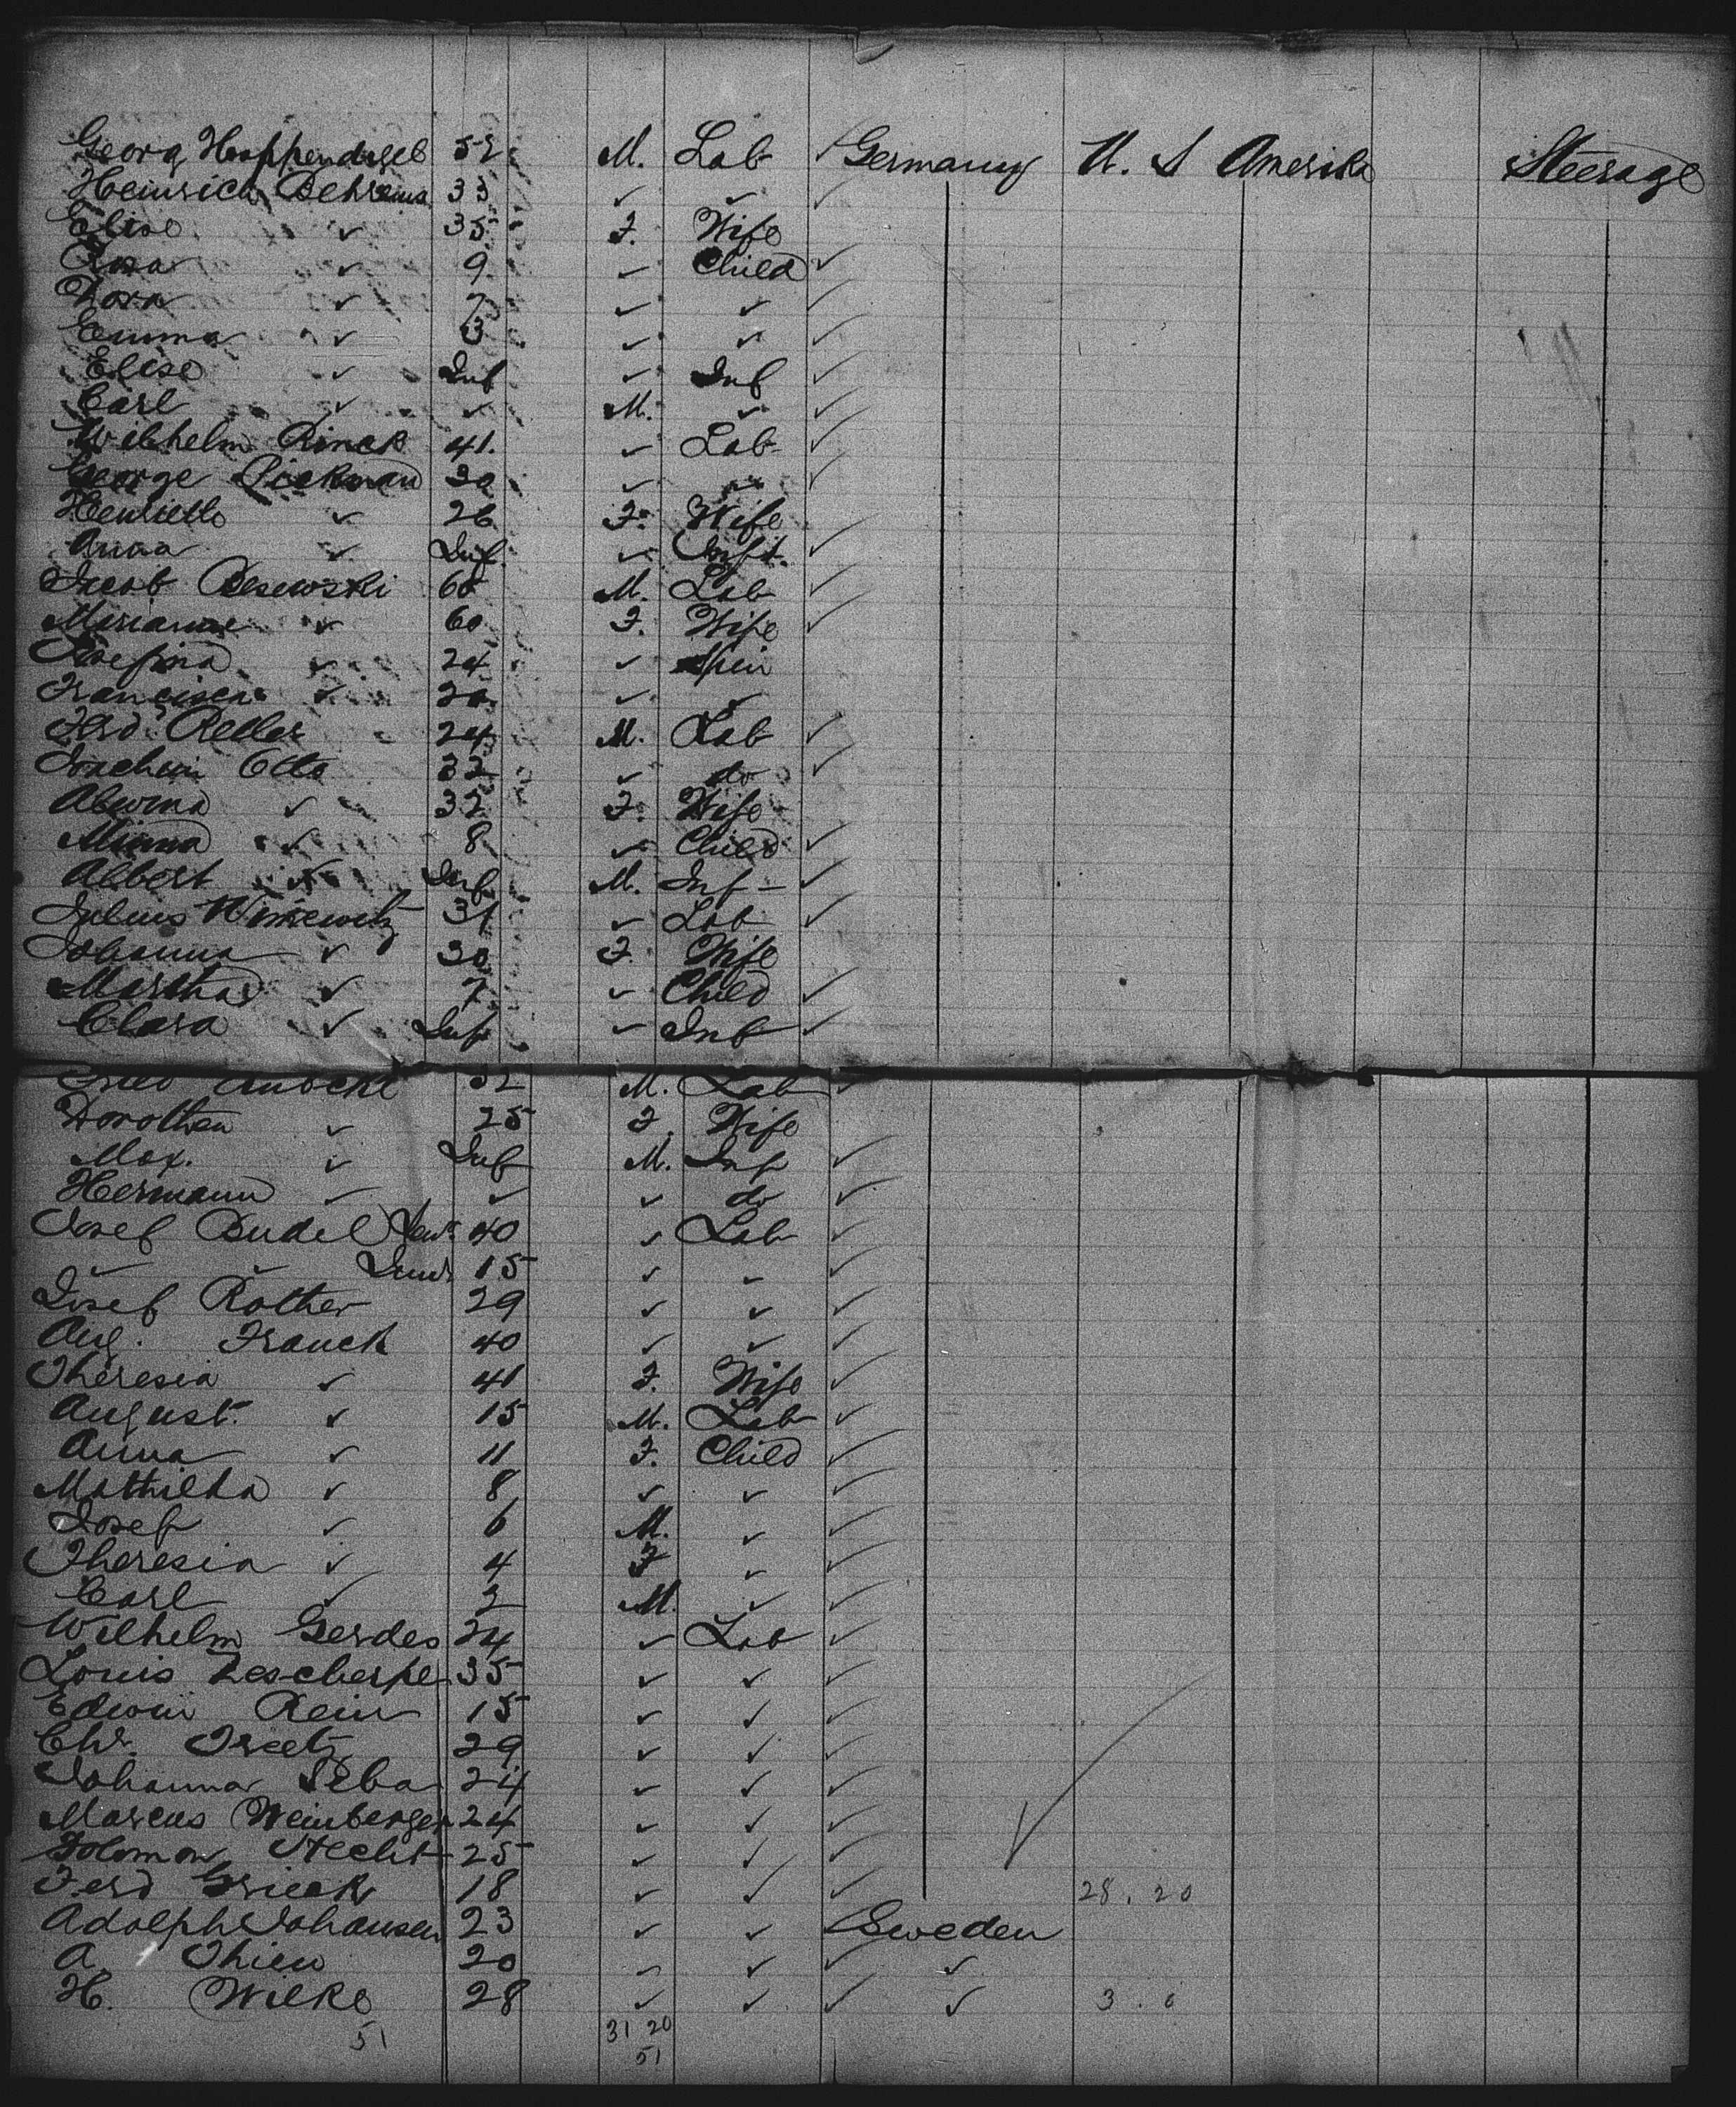 Georg Hoppendizel 52 M. Lab ✓ Germany U. S Amerika Steerage
Heinrich Behrens 33 ✓ ✓ ✓
Elise ✓ 35 F. Wife
✓ 9 ✓ Child ✓
Dora ✓ 7 ✓ ✓ ✓
Emma ✓ 3 ✓ ✓ ✓
Elise ✓ Inf ✓ Inf ✓
Carl ✓ ✓ M. ✓ ✓
Wilhelm Rinck 41. ✓ Lab ✓
George 30 ✓ ✓ ✓
Henriette ✓ 26 F. Wife ✓
Anna ✓ Inf ✓ Inft. ✓
Jacob M. Lab ✓
Marianne ✓ 60 F. Wife ✓
Josefina ✓ 24 ✓ Spin
Francisca ✓ 20 ✓ ✓
Ferd. 24 M. Lab ✓
Joachim Otto 32 ✓ do ✓
Alwina ✓ 32 F. Wife
Minna ✓ 8 ✓ Child ✓
Albert ✓ Inf M. Inf ✓
Julius 31 ✓ Lab ✓
Johanna ✓ 30 F. Wife
Martha ✓ 7 ✓ Child ✓
Clara ✓ Inf ✓ Inf ✓
32 M. Lab ✓
Dorothea ✓ 25 F. Wife
Max. ✓ Inf M. Inf ✓
Hermann ✓ ✓ ✓ do ✓
Josef Budel Sen. 40 ✓ Lab ✓
✓ ✓ Jun. 15 ✓ ✓ ✓
Josef Rother 29 ✓ ✓ ✓
Aug. Franck 40 ✓ ✓ ✓
Theresia ✓ 41 F. Wife ✓
August. ✓ 15 M. Lab ✓
Anna ✓ 11 F. Child ✓
Mathilda ✓ 8 ✓ ✓ ✓
Josef ✓ 6 M. ✓ ✓
Theresia ✓ 4 F ✓ ✓
Carl ✓ 2 M. ✓ ✓
Wilhelm Gerdes 24 ✓ Lab ✓
Louis Zescherpe 35 ✓ ✓ ✓
Edwin Rein 15 ✓ ✓ ✓
Chr. 29 ✓ ✓ ✓
Johanna 24 ✓ ✓ ✓
Marcus Weinberger 24 ✓ ✓ ✓
Solomon Hecht 25 ✓ ✓ ✓
Ferd 18 ✓ ✓ ✓ 28. 20
Adolph Johansen 23 ✓ ✓ Sweden
A. Thien 20 ✓ ✓ ✓ ✓
H. Wilke 28 ✓ ✓ ✓ ✓ 3. 0
51 31 20
51